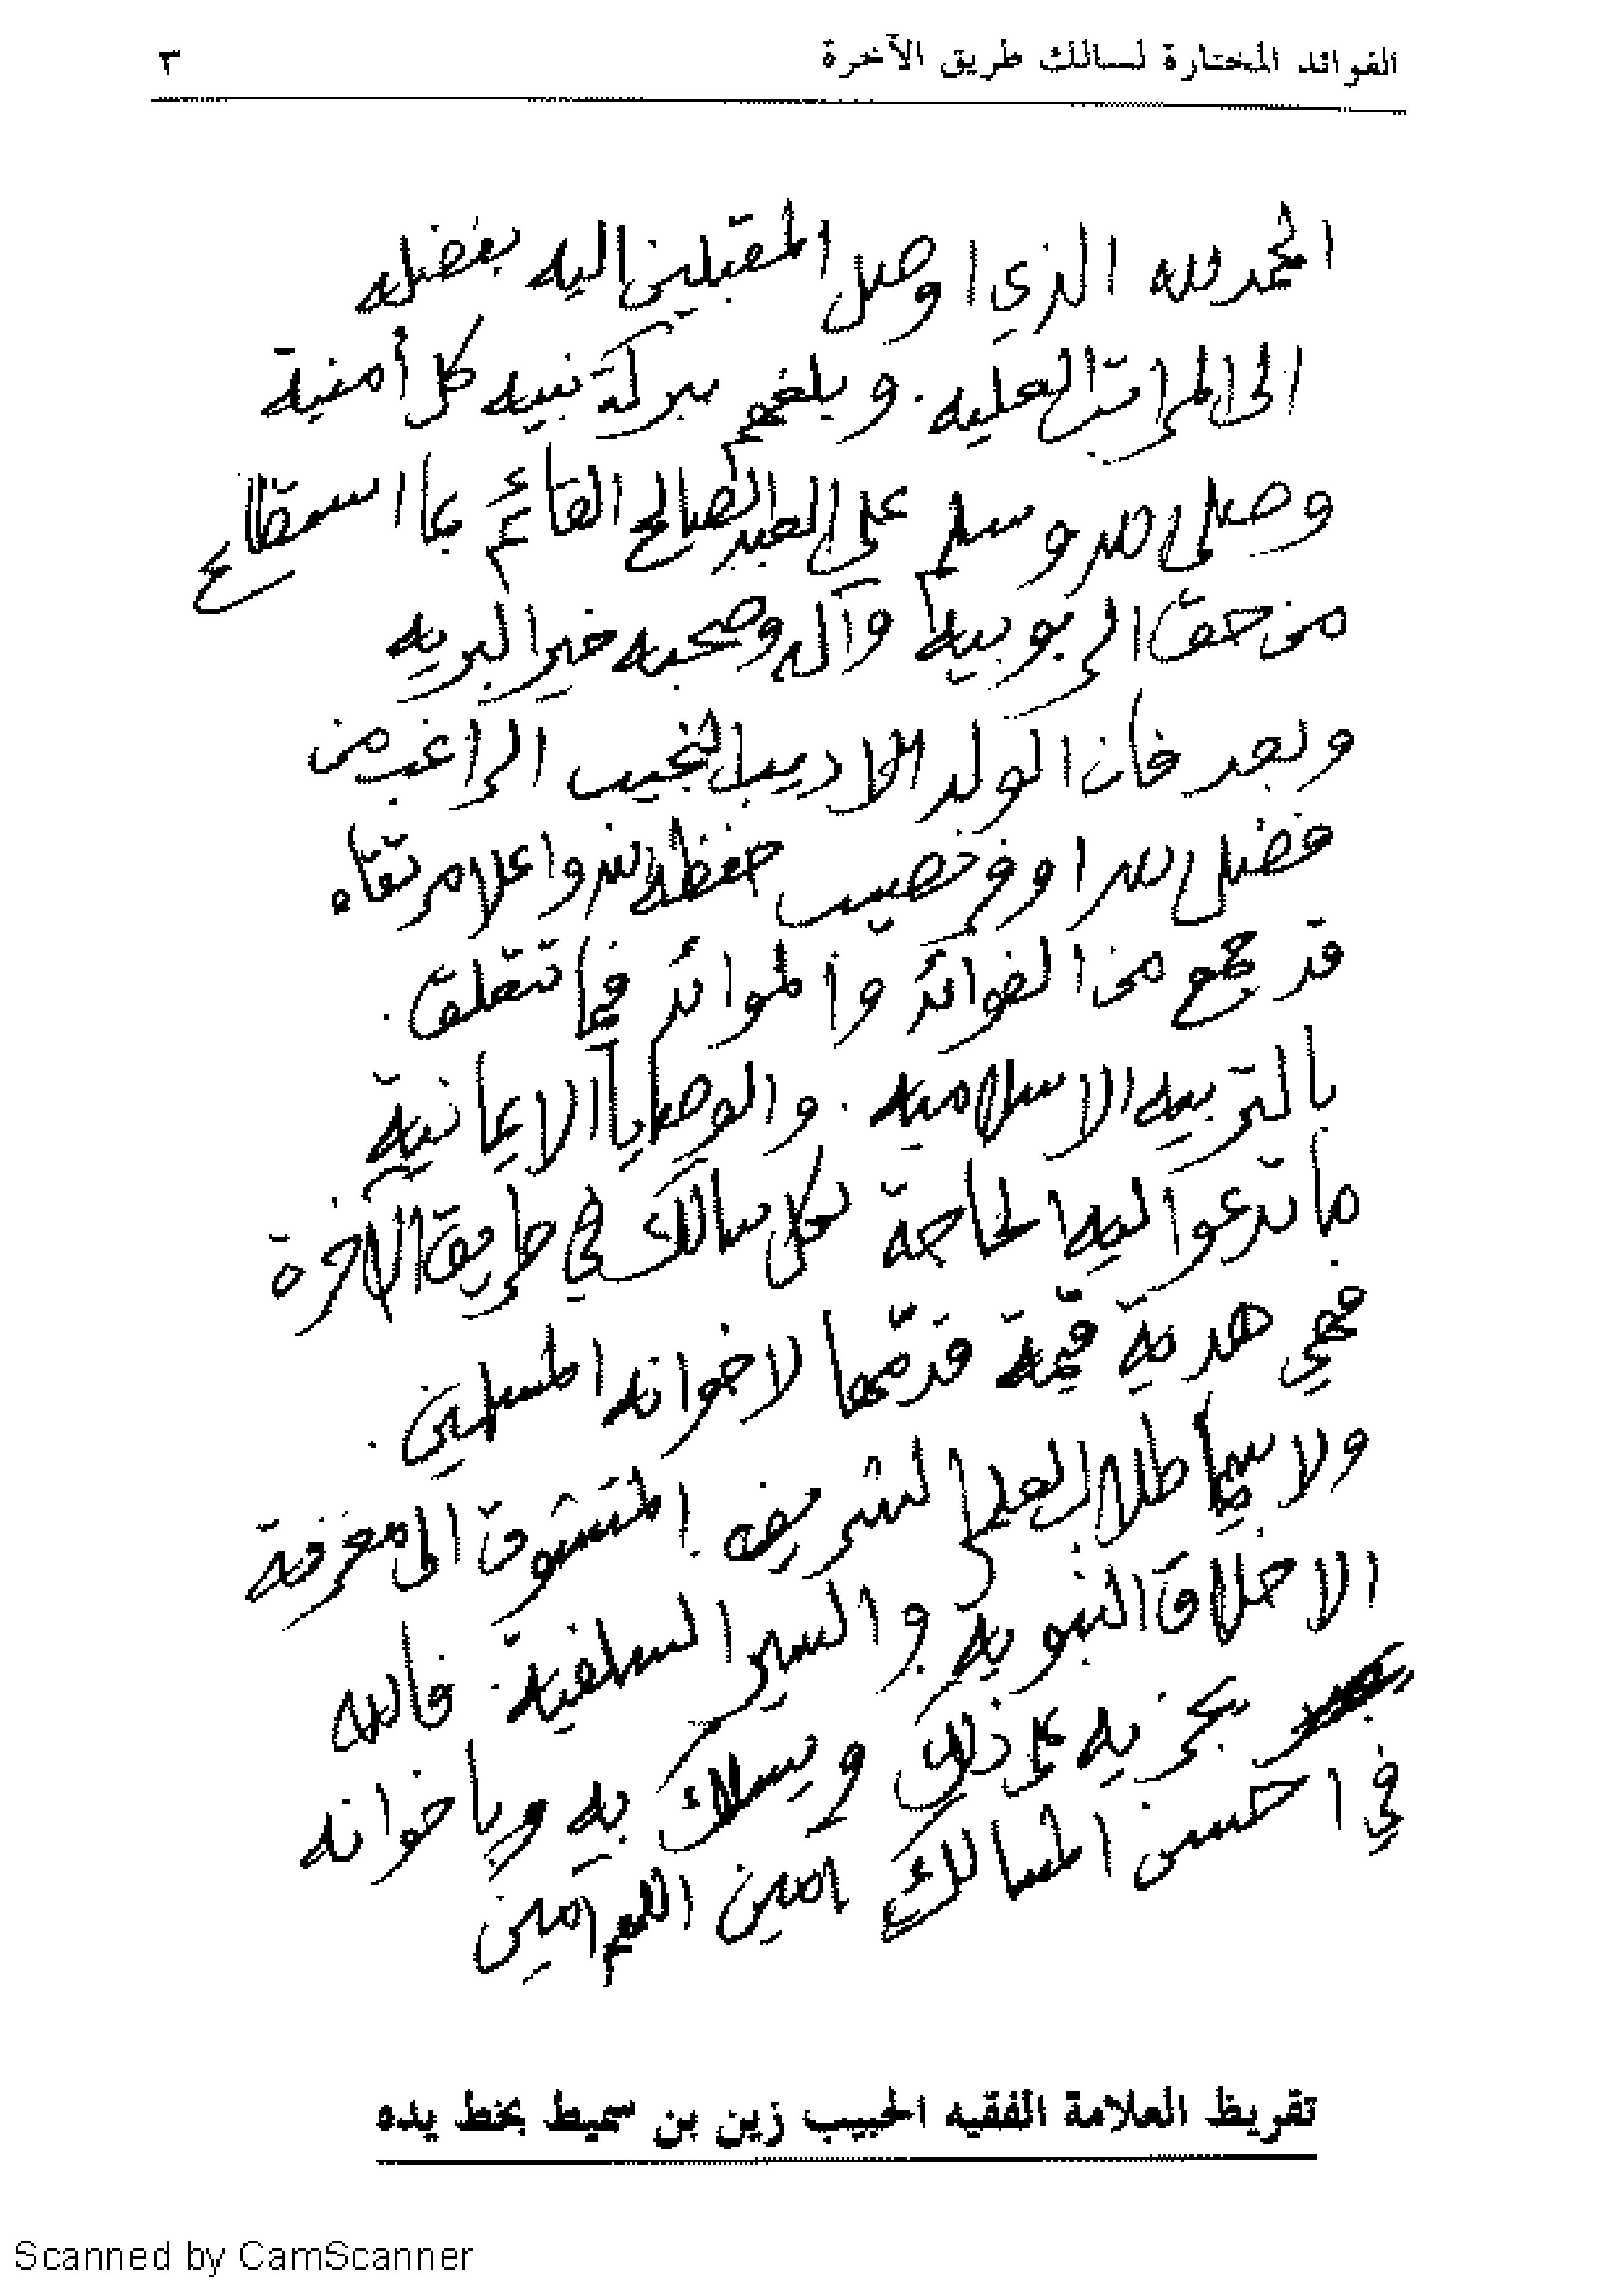 الفوائد المختارة لسالك طريق الآخرة ٣
الحمد لله الذي اوصل المقبلين اليه بفضله
الى المراتب العليه . وبلغهم ببركة نبيه كل أمنية
وصلى الله وسلم على العبد الصالح القائم بما استطاع
من حق الربوبية وآله وصحبه خير البريه
وبعد فان الولد الاديب النجيب الراغب من
فضل الله اوفر نصيب حفظه الله واعلا مرتقاه
قد جمع من الفوائد والموائد فيما تتعلق .
بالتربيه الاسلاميه . والوصايا الايمانية
ما تدعوا اليه الحاجة لكل سالك في طريق الآخرة
فهي هدية قيمة قدمّها لاخوانه المسلمين .
ولا سيما طلاب العلم الشريف المتشوق الى معرفة
الاخلاق النبويه والسير السلفية . فالله
يجزيه على ذلك ويسلك به وباخوانه
في احسن المسالك امين اللهم امين
تقريظ العلامة الفقيه الحبيب زين بن سميط بخط يده
Scanned by CamScanner